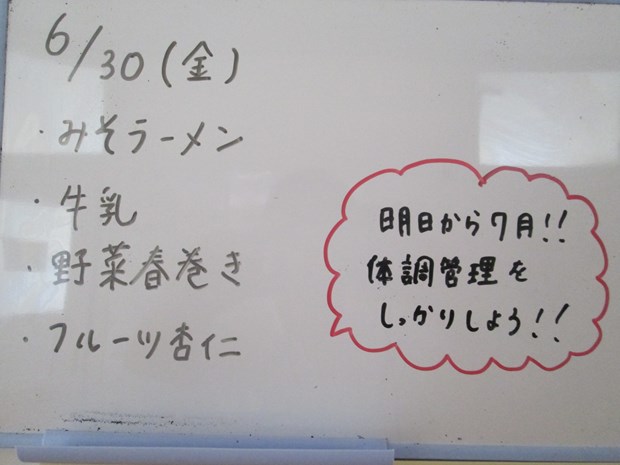 6/30(金)
・みそラーメン
・牛乳
・野菜春巻き
・フルーツ杏仁
明日から7月!!
体調管理を
しっかりしよう!!